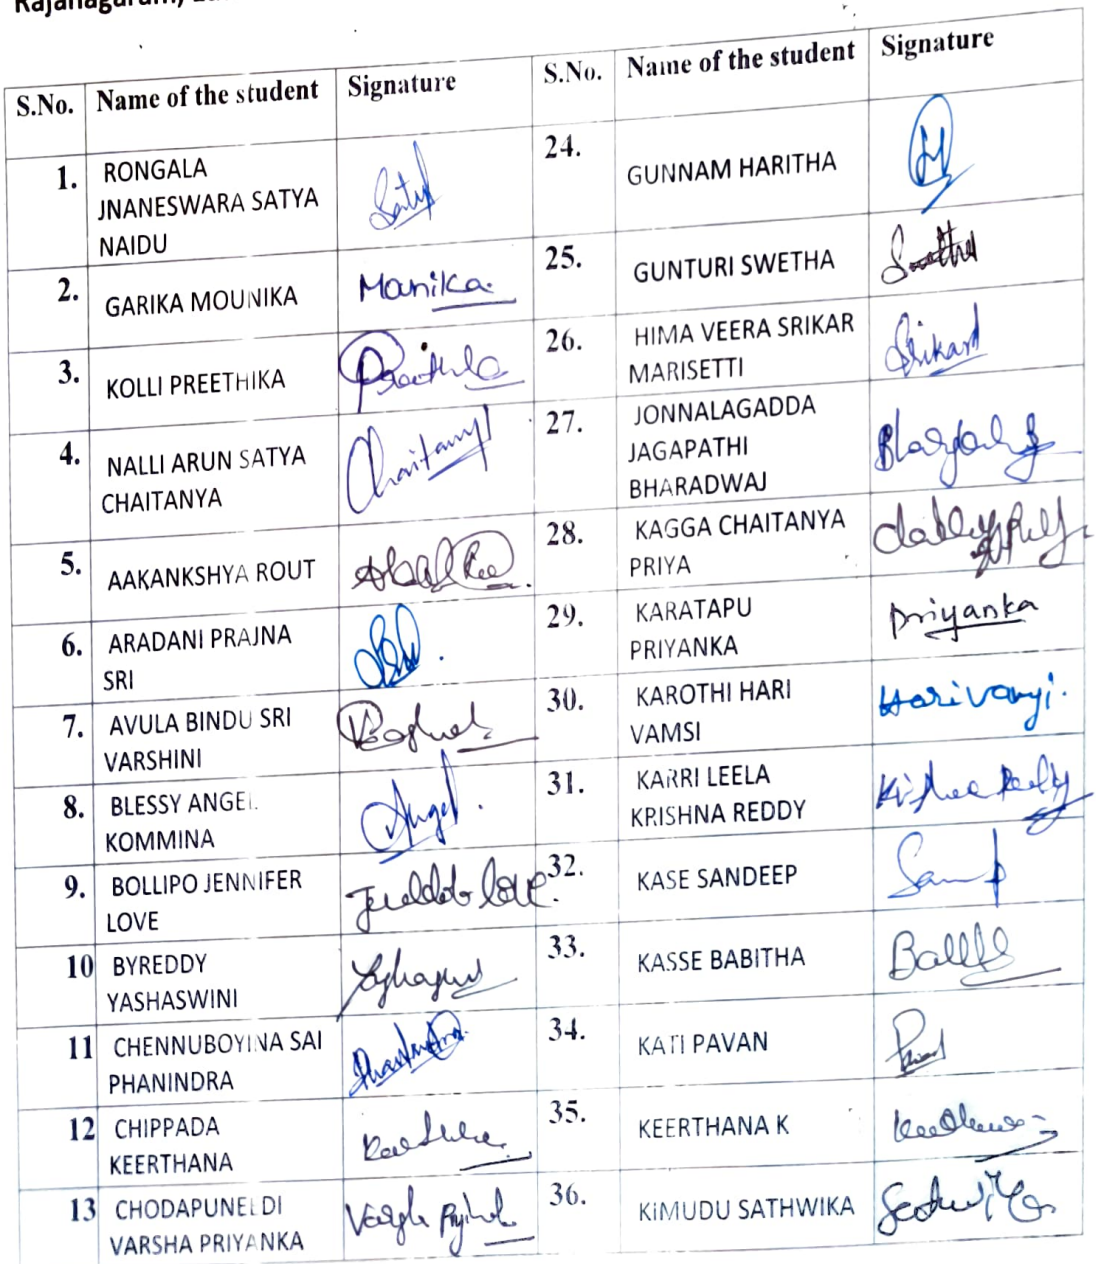 Rajanagaram,
S.No. Name of the student Signature S.No. Name of the student Signature
1. RONGALA
JNANESWARA SATYA
NAIDU
Satya
24. GUNNAM HARITHA
H
2. GARIKA MOUNIKA
Manika
25. GUNTURI SWETHA
Swetha
3. KOLLI PREETHIKA
26. HIMA VEERA SRIKAR
MARISETTI
Srikar
4. NALLI ARUN SATYA
CHAITANYA
Chaitanya
27. JONNALAGADDA
JAGAPATHI
BHARADWAJ
5. AAKANKSHYA ROUT
28. KAGGA CHAITANYA
PRIYA
6. ARADANI PRAJNA
SRI
29. KARATAPU
PRIYANKA
Priyanka
7. AVULA BINDU SRI
VARSHINI
30. KAROTHI HARI
VAMSI
8. BLESSY ANGEL
KOMMINA
Angel.
31. KARRI LEELA
KRISHNA REDDY
9. BOLLIPO JENNIFER
LOVE
love
32. KASE SANDEEP
10 BYREDDY
YASHASWINI
33. KASSE BABITHA
11 CHENNUBOYINA SAI
PHANINDRA
Phanindra
34. KATI PAVAN
12 CHIPPADA
KEERTHANA
35. KEERTHANA K
13 CHODAPUNEEDI
VARSHA PRIYANKA
36. KIMUDU SATHWIKA